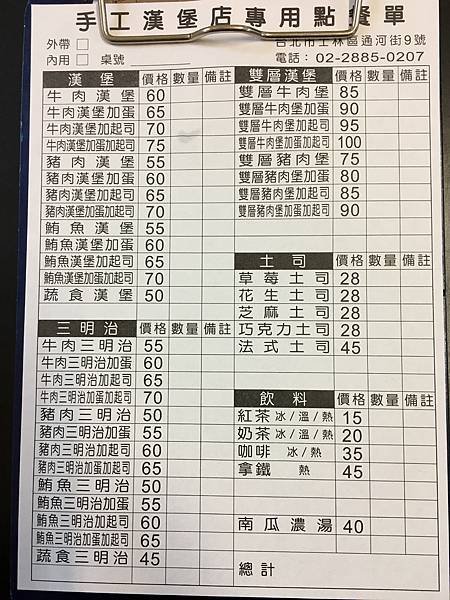 手工漢堡店專用點餐單
外帶 □ 台北市士林區通河街9號
內用 □ 桌號 電話：02-2885-0207
漢堡 價格 數量 備註
牛肉漢堡 60
牛肉漢堡加蛋 65
牛肉漢堡加起司 70
牛肉漢堡加蛋加起司 75
豬肉漢堡 55
豬肉漢堡加蛋 60
豬肉漢堡加起司 65
豬肉漢堡加蛋加起司 70
鮪魚漢堡 55
鮪魚漢堡加蛋 60
鮪魚漢堡加起司 65
鮪魚漢堡加蛋加起司 70
蔬食漢堡 50
三明治 價格 數量 備註
牛肉三明治 55
牛肉三明治加蛋 60
牛肉三明治加起司 65
牛肉三明治加蛋加起司 70
豬肉三明治 50
豬肉三明治加蛋 55
豬肉三明治加起司 60
豬肉三明治加蛋加起司 65
鮪魚三明治 50
鮪魚三明治加蛋 55
鮪魚三明治加起司 60
鮪魚三明治加蛋加起司 65
蔬食三明治 45
雙層漢堡 價格 數量 備註
雙層牛肉堡 85
雙層牛肉堡加蛋 90
雙層牛肉堡加起司 95
雙層牛肉堡加蛋加起司 100
雙層豬肉堡 75
雙層豬肉堡加蛋 80
雙層豬肉堡加起司 85
雙層豬肉堡加蛋加起司 90
土司 價格 數量 備註
草莓土司 28
花生土司 28
芝麻土司 28
巧克力土司 28
法式土司 45
飲料 價格 數量 備註
紅茶 冰/溫/熱 15
奶茶 冰/溫/熱 20
咖啡 冰/熱 35
拿鐵 熱 45
南瓜濃湯 40
總計